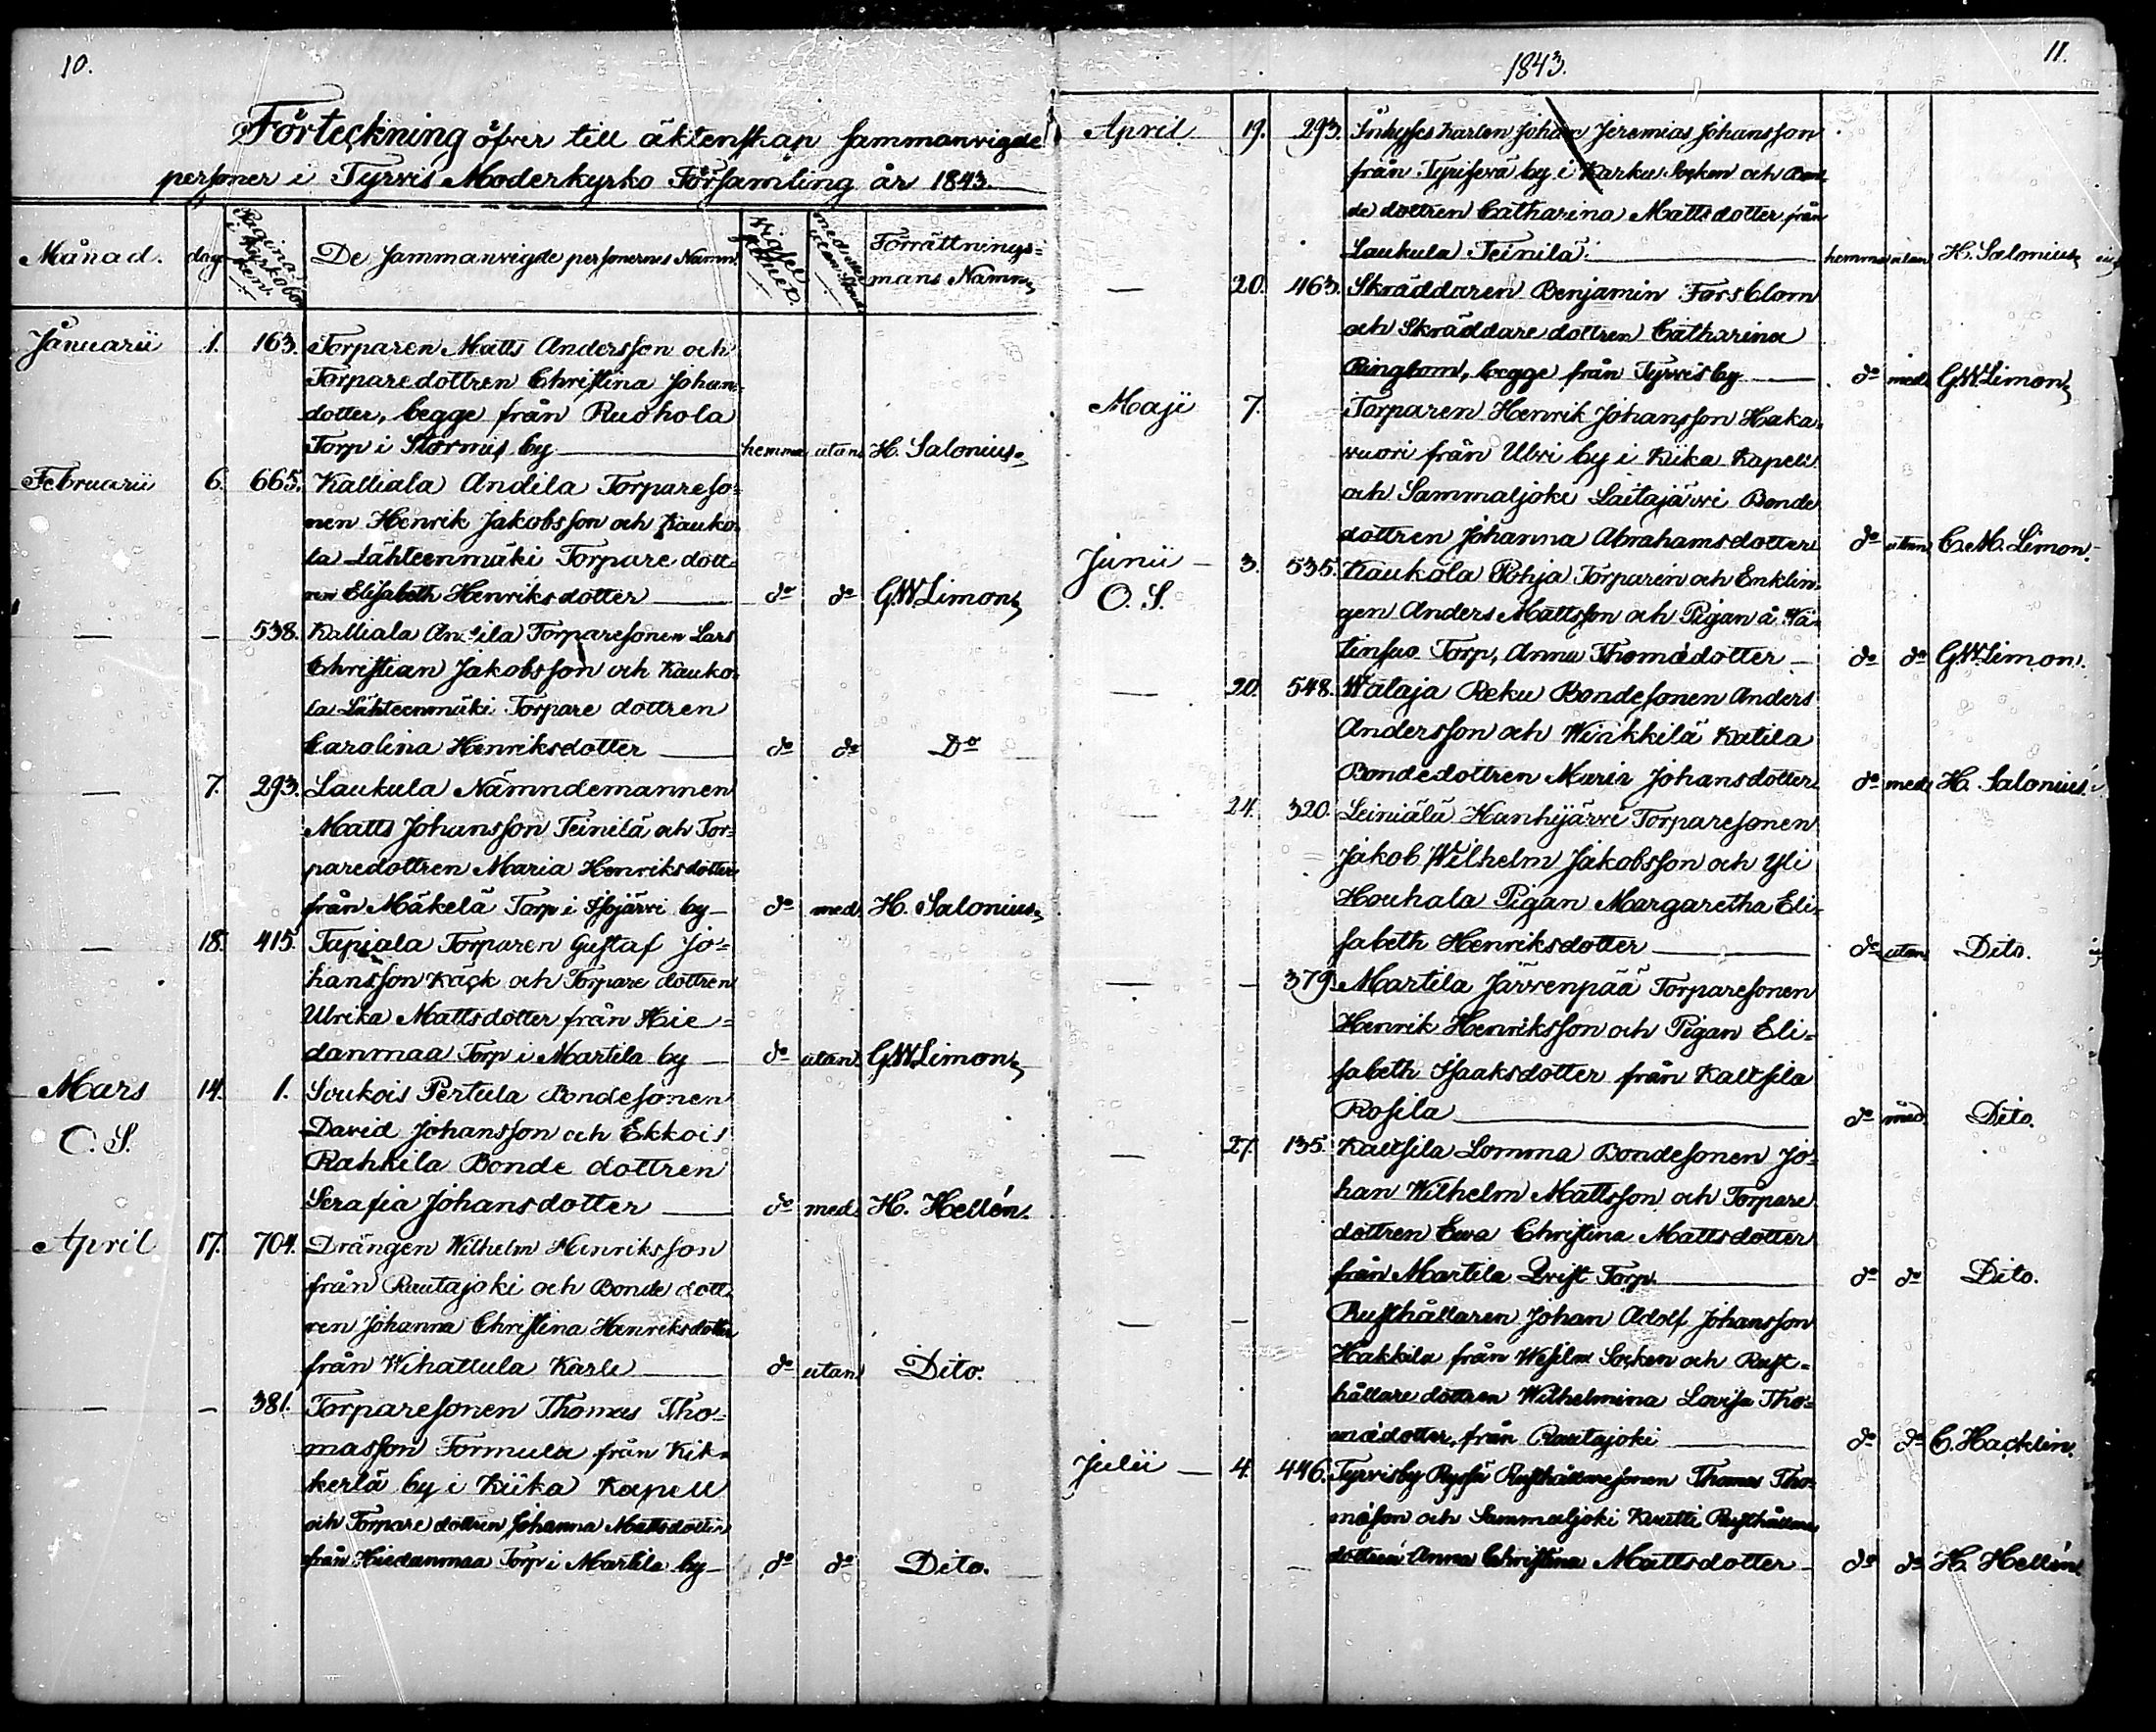 10.
Förteckning öfver till äktenskap sammanvigde
personer i Tyrvis Moderkyrko Församling år 1843.
Månad. dag Pagina i Kyrkobo ken. De sammanvigde personernes Namn. med eller utan Förrättnings=
mans Namn
Januarii 1. 163. Torparen Matts Andersson och
Torparedottren Christina Johans=
dotter, begge från Ruohola
Torp i Stormis by hemma utan H. Salonius
Februarii 6. 665. Kalliala Andila Torpareso=
nen Henrik Jakobsson och Kauko=
la Lähteenmäki Torpare dott=
ren Elisabeth Henriksdotter do do GWLimon
— — 538. Kalliala Andila Torparesonen Lars
Christian Jakobsson och Kauko=
la Lähteenmäki Torpare dottren
Carolina Henriksdotter do do Do
— 7. 293. Laukula Nämndemannen
Matts Johansson Teinilä och Tor=
paredottren Maria Henriksdotter
från Mäkelä Torp i Isojärvi by do med H. Salonius
— 18. 415. Tapiala Torparen Gustaf Jo=
hansson Käck och Torpare dottren
Ulrika Mattsdotter från Hie=
danmaa Torp i Martila by do utan GWLimon
Mars 14. 1. Soukois Pertula Bondesonen
O. S. David Johansson och Ekkois
Rahkila Bonde dottren
Serafia Johansdotter do med H. Hellén.
April 17. 704. Drängen Wilhelm Henriksson
från Rautajoki och Bonde dott=
ren Johanna Christina Henriksdotter
från Wihattula Karle do utan Dito.
— — 381. Torparesonen Thomas Tho=
masson Tormula från Kik=
kerlä by i Kiika Kapell
och Torpare dottren Johanna Mattsdotter
från Hiedanmaa Torp i Martila by do do Dito.
1843. 11.
April 19. 293. Inhyses Karlen Johan Jeremias Johansson
från Tyrisevä by i Karku Socken och Bon=
de dottren Catharina Mattsdotter från
Laukula Teinilä. hemma utan H. Salonius
— 20. 463. Skräddaren Benjamin Forsblom
och Skräddare dottren Catharina
Ringbom, begge från Tyrvis by do med GWLimon
Maji 7. Torparen Henrik Johansson Haka=
vuori från Ulvi by i Kiika Kapell
och Sammaljoki Laitajärvi Bonde
dottren Johanna Abrahamsdotter do utan C.M. Limon.
Junii — 3. 535. Kaukola Pohja Torparen och Enklin=
O. S. gen Anders Mattsson och Pigan å
Torp, Anna Thomädotter do do GWLimon.
— 20. 548. Wataja Reku Bondesonen Anders
Andersson och Winkkilä Katila
Bondedottren Maria Johansdotter do med H. Salonius
— 24. 320. Leiniälä Hanhijärvi Torparesonen
Jakob Wilhelm Jakobsson och Yli
Houhala Pigan Margaretha Eli=
sabeth Henriksdotter do utan Dito.
— — 379. Martila Järvenpää Torparesonen
Henrik Henriksson och Pigan Eli=
sabeth Isaaksdotter från Kaltsila
Rosila do med Dito.
— 27. 135. Kaltsila Lomma Bondesonen Jo=
han Wilhelm Mattsson och Torpare
dottren Ewa Christina Mattsdotter
från Martila Torp. do do Dito.
— — Rusthållaren Johan Adolf Johansson
Hakkila från Wesilax Socken och Rust=
hållare dottren Wilhelmina Lovisa Tho=
mädotter, från Rautajoki do do C. Hacklin.
Julii — 4. 446. Tyrvisby Ryssä Rusthållaresonen Thomas Tho=
mäson och Sammaljoki Knutti Rusthållare
dottren Anna Christina Mattsdotter do do H. Hellén